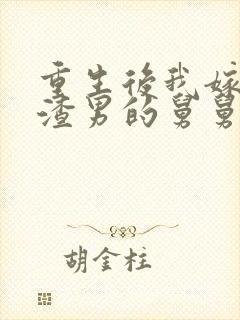 重生後我嫁
渣男的舅舅
胡金柱